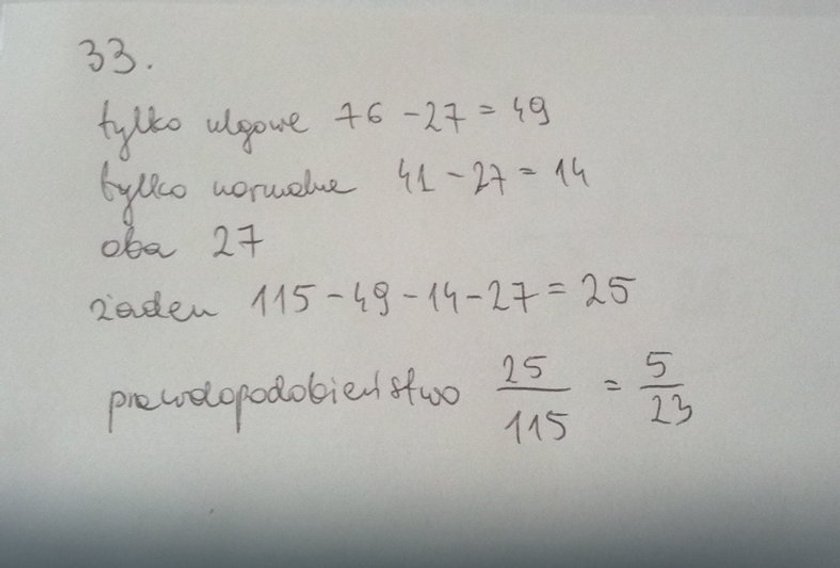 33.
tylko ulgowe 76 - 27 = 49
tylko normalne 41 - 27 = 14
oba 27
żaden 115 - 49 - 14 - 27 = 25
prawdopodobieństwo 25/115 = 5/23